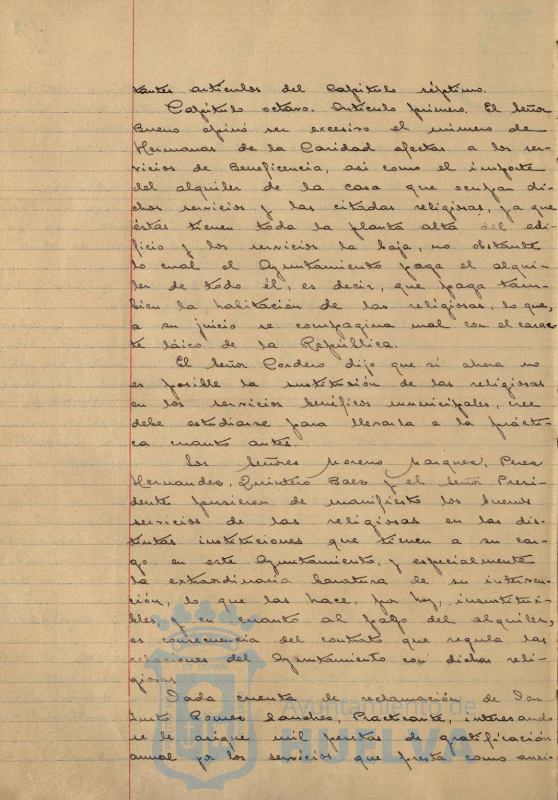 tantes artículos del Capítulo séptimo.
Capítulo octavo. Artículo primero. El Señor
Bueno opinó ser excesivo el número de
Hermanas de la Caridad afectas a los ser-
vicios de Beneficencia, asi como el importe
del alquiler de la casa que ocupan di-
chos servicios y las citadas religiosas, ya que
éstas tienen toda la planta alta del edi-
ficio y los servicios la baja, no obstante
lo cual el Ayuntamiento paga el alqui-
ler de todo él, es decir, que paga tam-
bien la habitación de las religiosas, lo que,
a su juicio se compagina mal con el carac-
te láico de la República.
El Señor Cordero dijo que si ahora no
es posible la sustitución de las religiosas
en los servicios benéficos municipales, cree
debe estudiarse para llevarla a la prácti-
ca cuanto antes.
Los Señores Moreno Marquez, Perez
Hernandez, Quintero Baez y el Señor Presi-
dente pusieron de manifiesto los buenos
servicios de las religiosas en las dis-
tintas instituciones que tienen a su car-
go en este Ayuntamiento, y especialmente
la extraordinaria baratura de su interven-
ción, lo que las hace, por hoy, insustitui-
bles, y en cuanto al pago del alquiler,
es consecuencia del contrato que regula las
relaciones del Ayuntamiento con dichas reli-
giosas.
Dada cuenta de reclamación de Don
Justo Gomez Sanchez, Practicante, interesando
se le asigne mil pesetas de gratificación
anual por los servicios que presta como auxi-
Ayuntamiento de
HUELVA